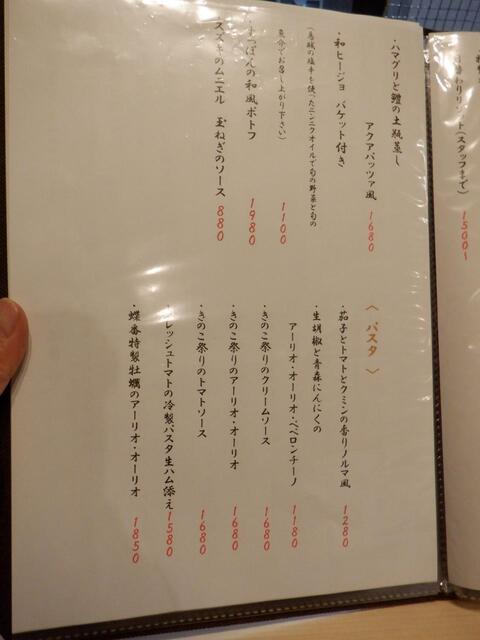 ・ハマグリと鱧の土瓶蒸し
アクアパッツァ風 1680
・和ヒージョ バケット付き
(烏賊の塩辛を使ったニンニクオイルで旬の野菜と旬の
魚介でお召し上がり下さい) 1100
・すっぽんの和風ポトフ 1980
スズキのムニエル 玉ねぎのソース 880
〈 パスタ 〉
・茄子とトマトとクミンの香りノルマ風 1280
・生胡椒と青森にんにくの
アーリオ・オーリオ・ペペロンチーノ 1180
・きのこ祭りのクリームソース 1680
・きのこ祭りのアーリオ・オーリオ 1680
・きのこ祭りのトマトソース 1680
フレッシュトマトの冷製パスタ生ハム添え 1580
・蝶番特製牡蠣のアーリオ・オーリオ 1850
(スタッフまで) 1500〜